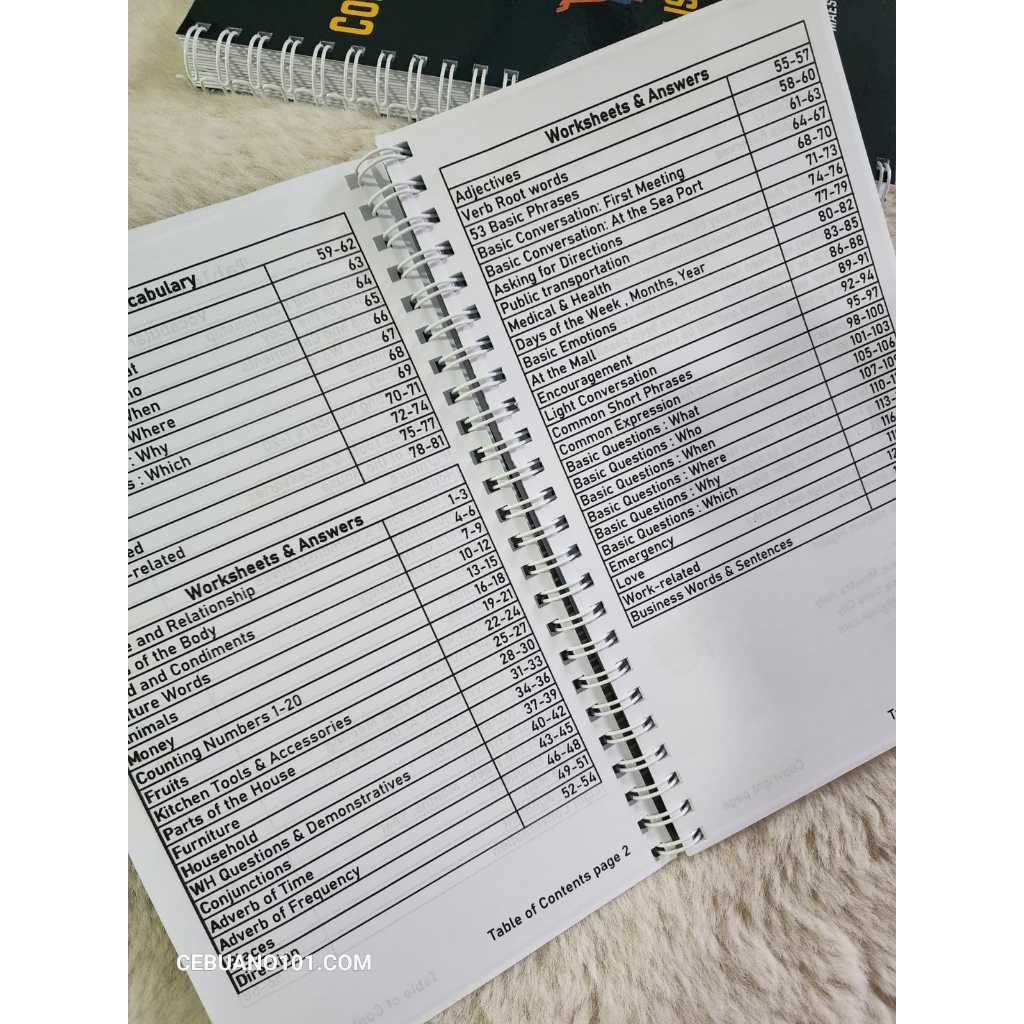 CO
IS
MAES
cabulary
59-62
63
64
65
66
67
68
69
70-71
72-74
75-77
78-81
When
Where
: Why
: Which
-related
Worksheets & Answers
1-3
4-6
7-9
10-12
13-15
16-18
19-21
22-24
25-27
28-30
31-33
34-36
37-39
40-42
43-45
46-48
49-51
52-54
e and Relationship
of the Body
and Condiments
ture Words
nimals
Money
Counting Numbers 1-20
Fruits
Kitchen Tools & Accessories
Parts of the House
Furniture
Household
WH Questions & Demonstratives
Conjunctions
Adverb of Time
Adverb of Frequency
Direction
Table of Contents page 2
Worksheets & Answers
Adjectives
Verb Root words
53 Basic Phrases
Basic Conversation: First Meeting
Basic Conversation: At the Sea Port
Asking for Directions
Public transportation
Medical & Health
Days of the Week , Months, Year
Basic Emotions
At the Mall
Encouragement
Light Conversation
Common Short Phrases
Common Expression
Basic Questions : What
Basic Questions : Who
Basic Questions : When
Basic Questions : Where
Basic Questions : Why
Basic Questions : Which
Emergency
Love
Work-related
Business Words & Sentences
55-57
58-60
61-63
64-67
68-70
71-73
74-76
77-79
80-82
83-85
86-88
89-91
92-94
95-97
98-100
101-103
105-106
CEBUANO101.COM